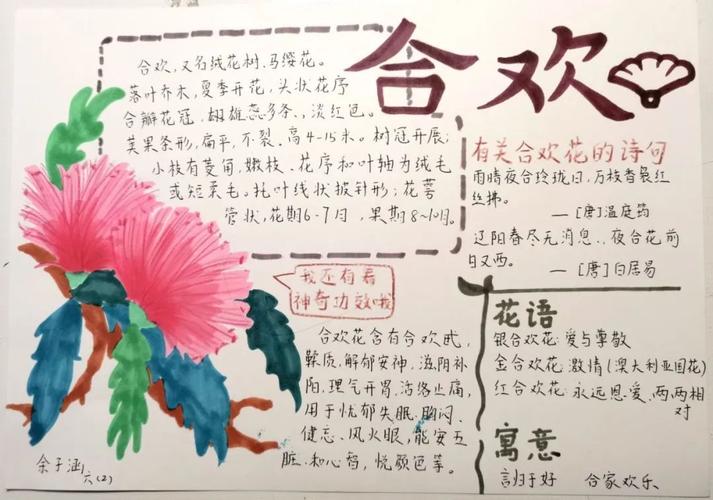 合欢
合欢,又名绒花树、马缨花。
落叶乔木,夏季开花,头状花序
合瓣花冠,雄蕊多条,淡红色。
荚果条形,扁平,不裂,高4-15米。树冠开展;
小枝有菱角,嫩枝、花序和叶轴为绒毛
或短柔毛。托叶线状披针形;花萼
管状,花期6-7月,果期8~10月。
有关合欢花的诗句
雨晴夜合玲珑日,万枝香袅红
丝拂。
—[唐]温庭筠
辽阳春尽无消息,夜合花前
日又西。
—[唐]白居易
我还有着
神奇功效哦
合欢花含有合欢甙,
鞣质,解郁安神,滋阴补
阳,理气开胃,活络止痛,
用于忧郁失眠、胸闷、
健忘、风火眼,能安五
脏、和心智,悦颜色等。
花语
银合欢花:爱与尊敬
金合欢花:激情(澳大利亚国花)
红合欢花:永远恩爱、两两相
对
寓意
言归于好 合家欢乐
余子涵
六(2)